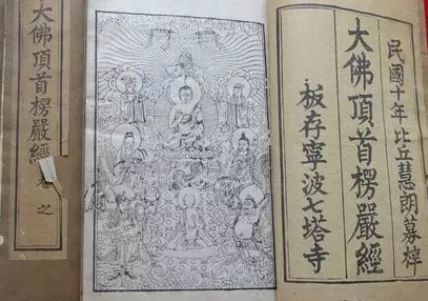 民國十年比丘慧朗募梓
大佛頂首楞嚴經
板存寧波七塔寺
大佛頂首楞嚴經卷之